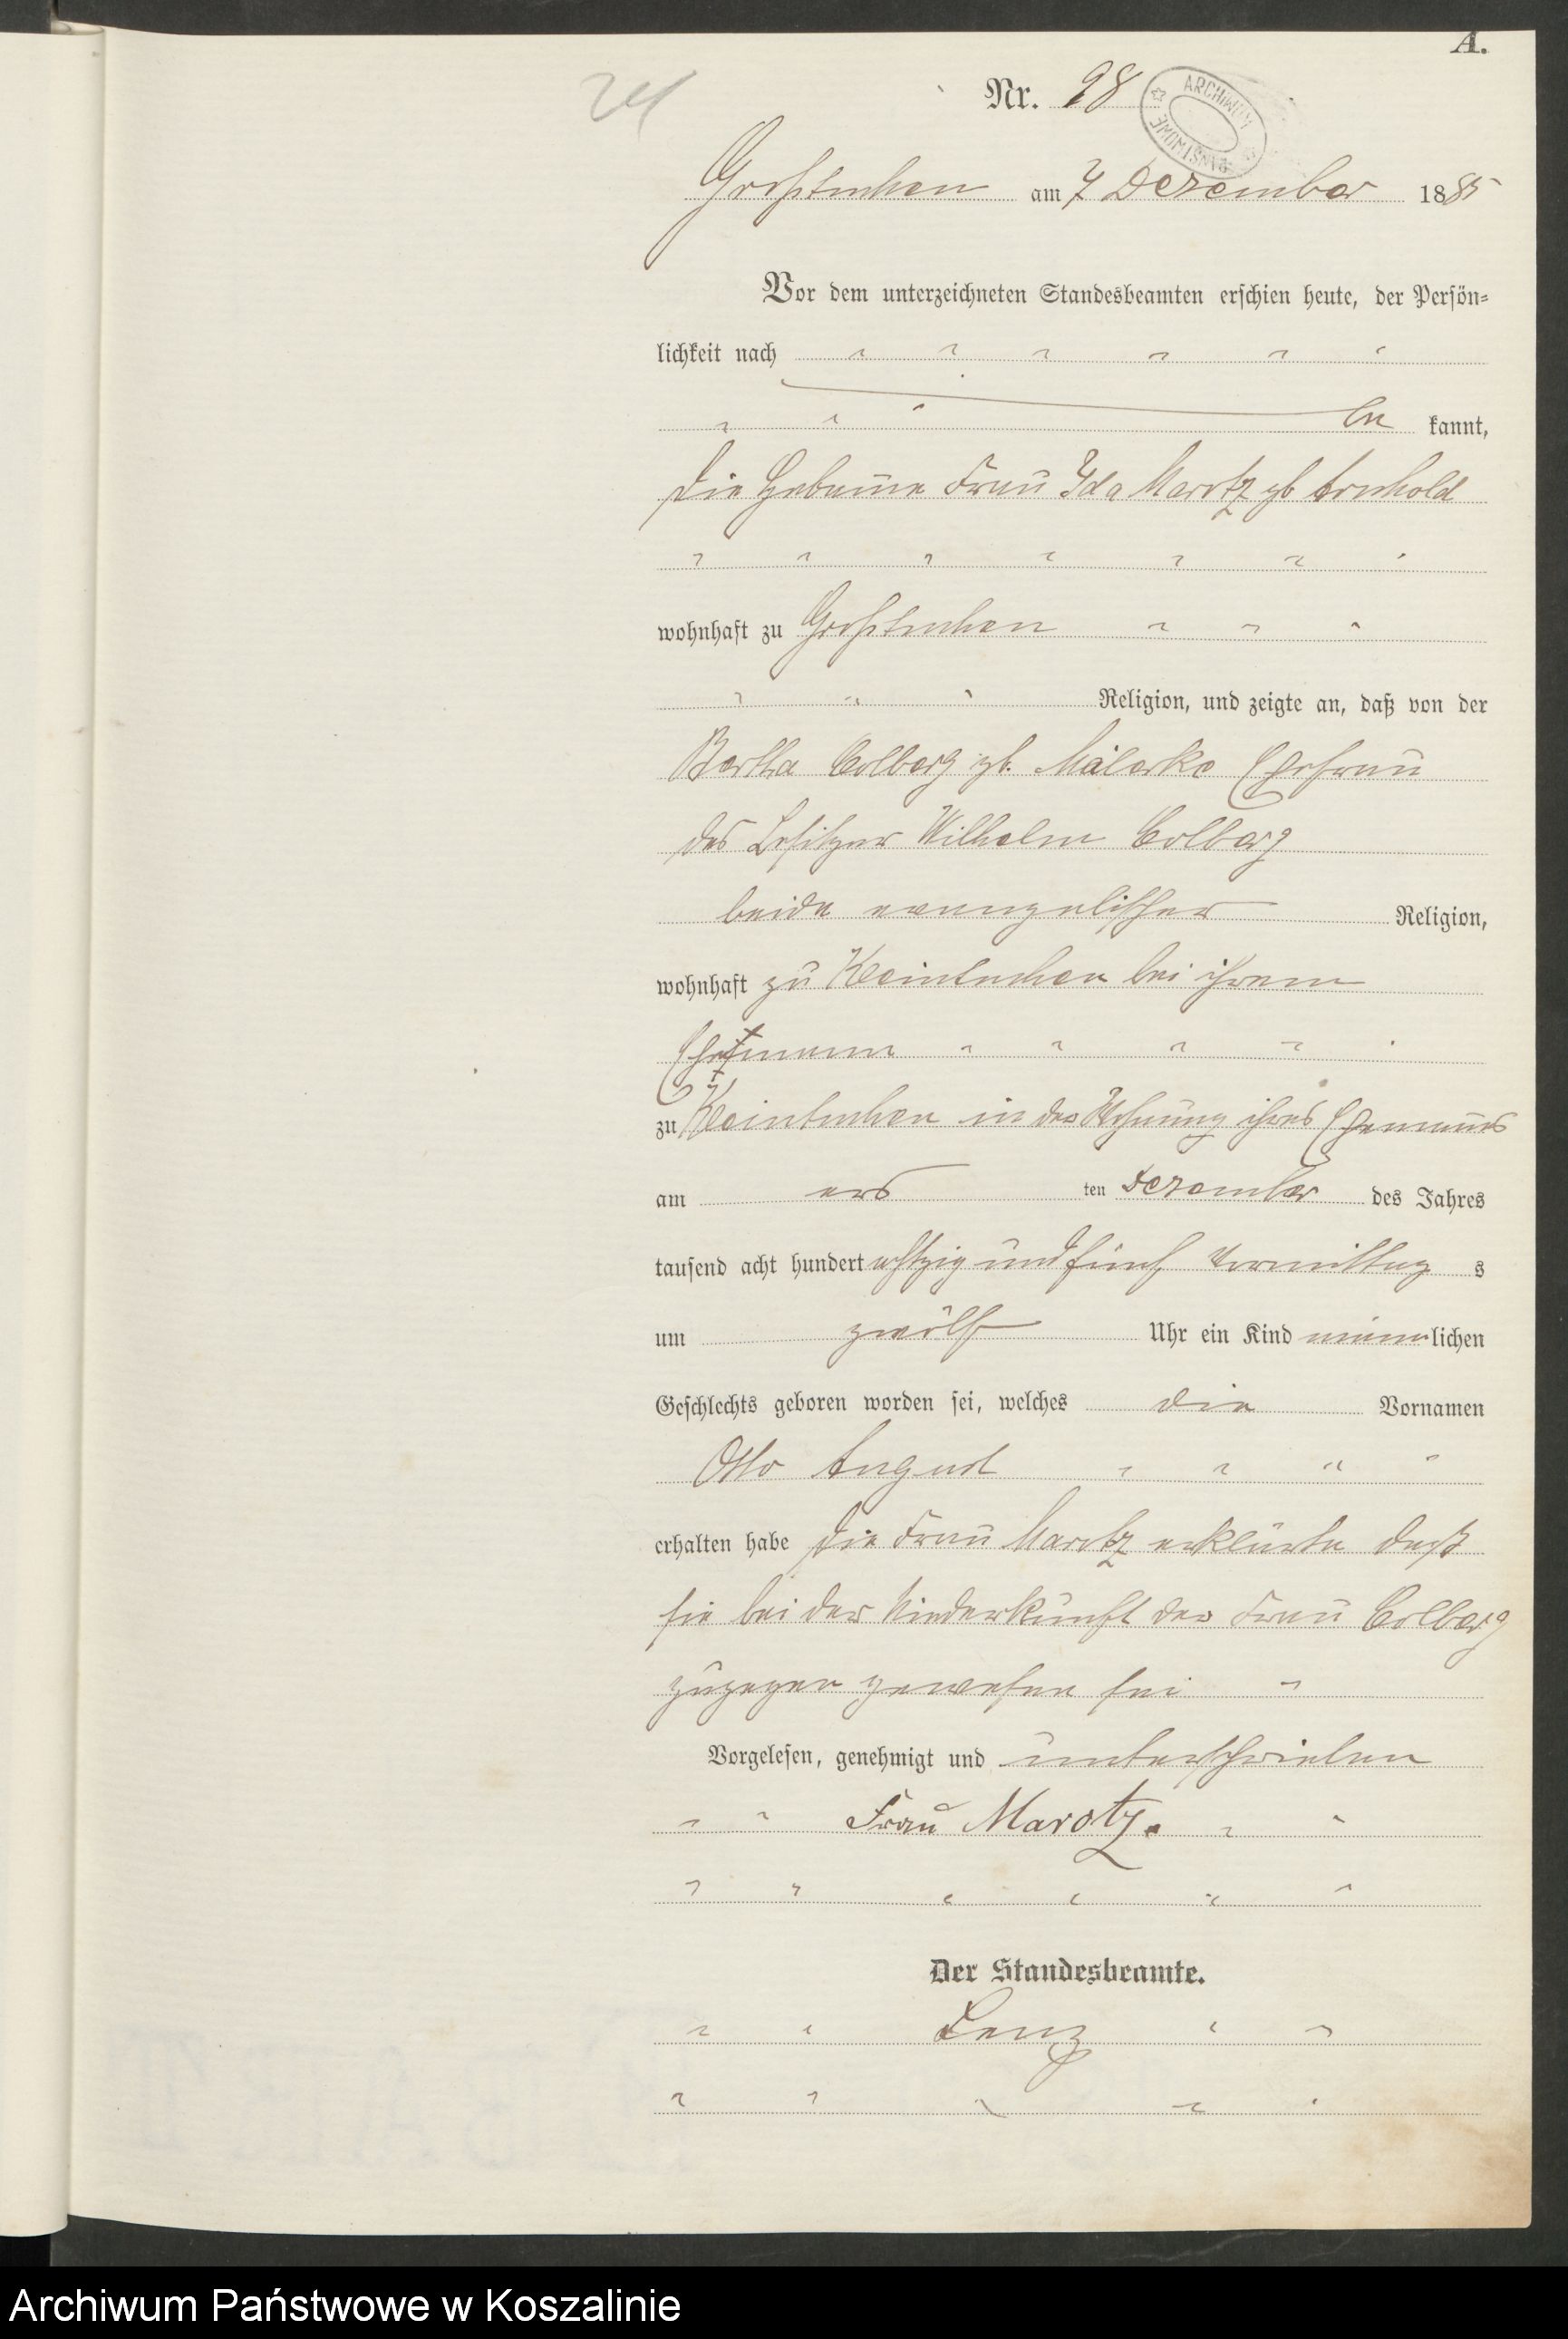 A.
24
Nr. 98
ARCHIWUM PAŃSTWOWE
Großtuchen am 7 Dezember 1885
Vor dem unterzeichneten Standesbeamten erschien heute, der Persön=
lichkeit nach
be kannt,
die Hebamme Frau Ida Marotz gb Arnhold
wohnhaft zu Großtuchen
Religion, und zeigte an, daß von der
Bertha Colberg gb. Malerke Ehefrau
des Besitzer Wilhelm Colberg
beide evangelischer Religion,
wohnhaft zu Kleintuchen bei ihrem
Ehemann
zu Kleintuchen in der Wohnung ihres Ehemanns
am ers ten Dezember des Jahres
tausend acht hundert achtzig und fünf Vormittag s
um zwölf Uhr ein Kind männ lichen
Geschlechts geboren worden sei, welches die Vornamen
Otto August
erhalten habe die Frau Marotz erklärte daß
sie bei der Niederkunft der Frau Colberg
zugegen gewesen sei
Vorgelesen, genehmigt und unterschrieben
Frau Marotz.
Der Standesbeamte.
Lenz
Archiwum Państwowe w Koszalinie